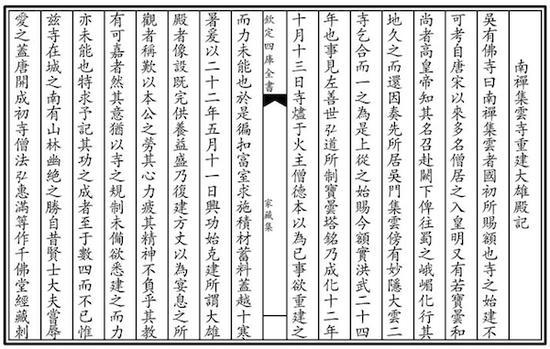 南禪集雲寺重建大雄殿記
吳有佛寺曰南禪集雲者國初所賜額也寺之始建不
可考自唐宋以來多名僧居之入皇明又有若寶曇和
尚者高皇帝知其名召赴闕下俾往蜀之峨嵋化行其
地久之而還因奏先所居吳門集雲傍有妙隱大雲二
寺乞合而一之為是上從之始賜今額實洪武二十四
年也事見左善世弘道所制寶曇塔銘乃成化十二年
十月十三日寺燼于火主僧德本以為已事欲重建之
欽定四庫全書
家藏集
而力未能也於是徧扣富室求施積材蓄料蓋越十寒
暑爰以二十二年五月十一日興功始克建所謂大雄
殿者像設既完供養益盛乃復建方丈以為宴息之所
觀者稱歎以本公之勞其心力疲其精神不負乎其教
有可嘉者然其意猶以寺之規制未備欲悉建之而力
亦未能也特求予記其功之成者至于數四而不已惟
兹寺在城之南有山林幽絕之勝自昔賢士大夫嘗辱
愛之蓋唐開成初寺僧法弘惠滿等作千佛堂經藏刺